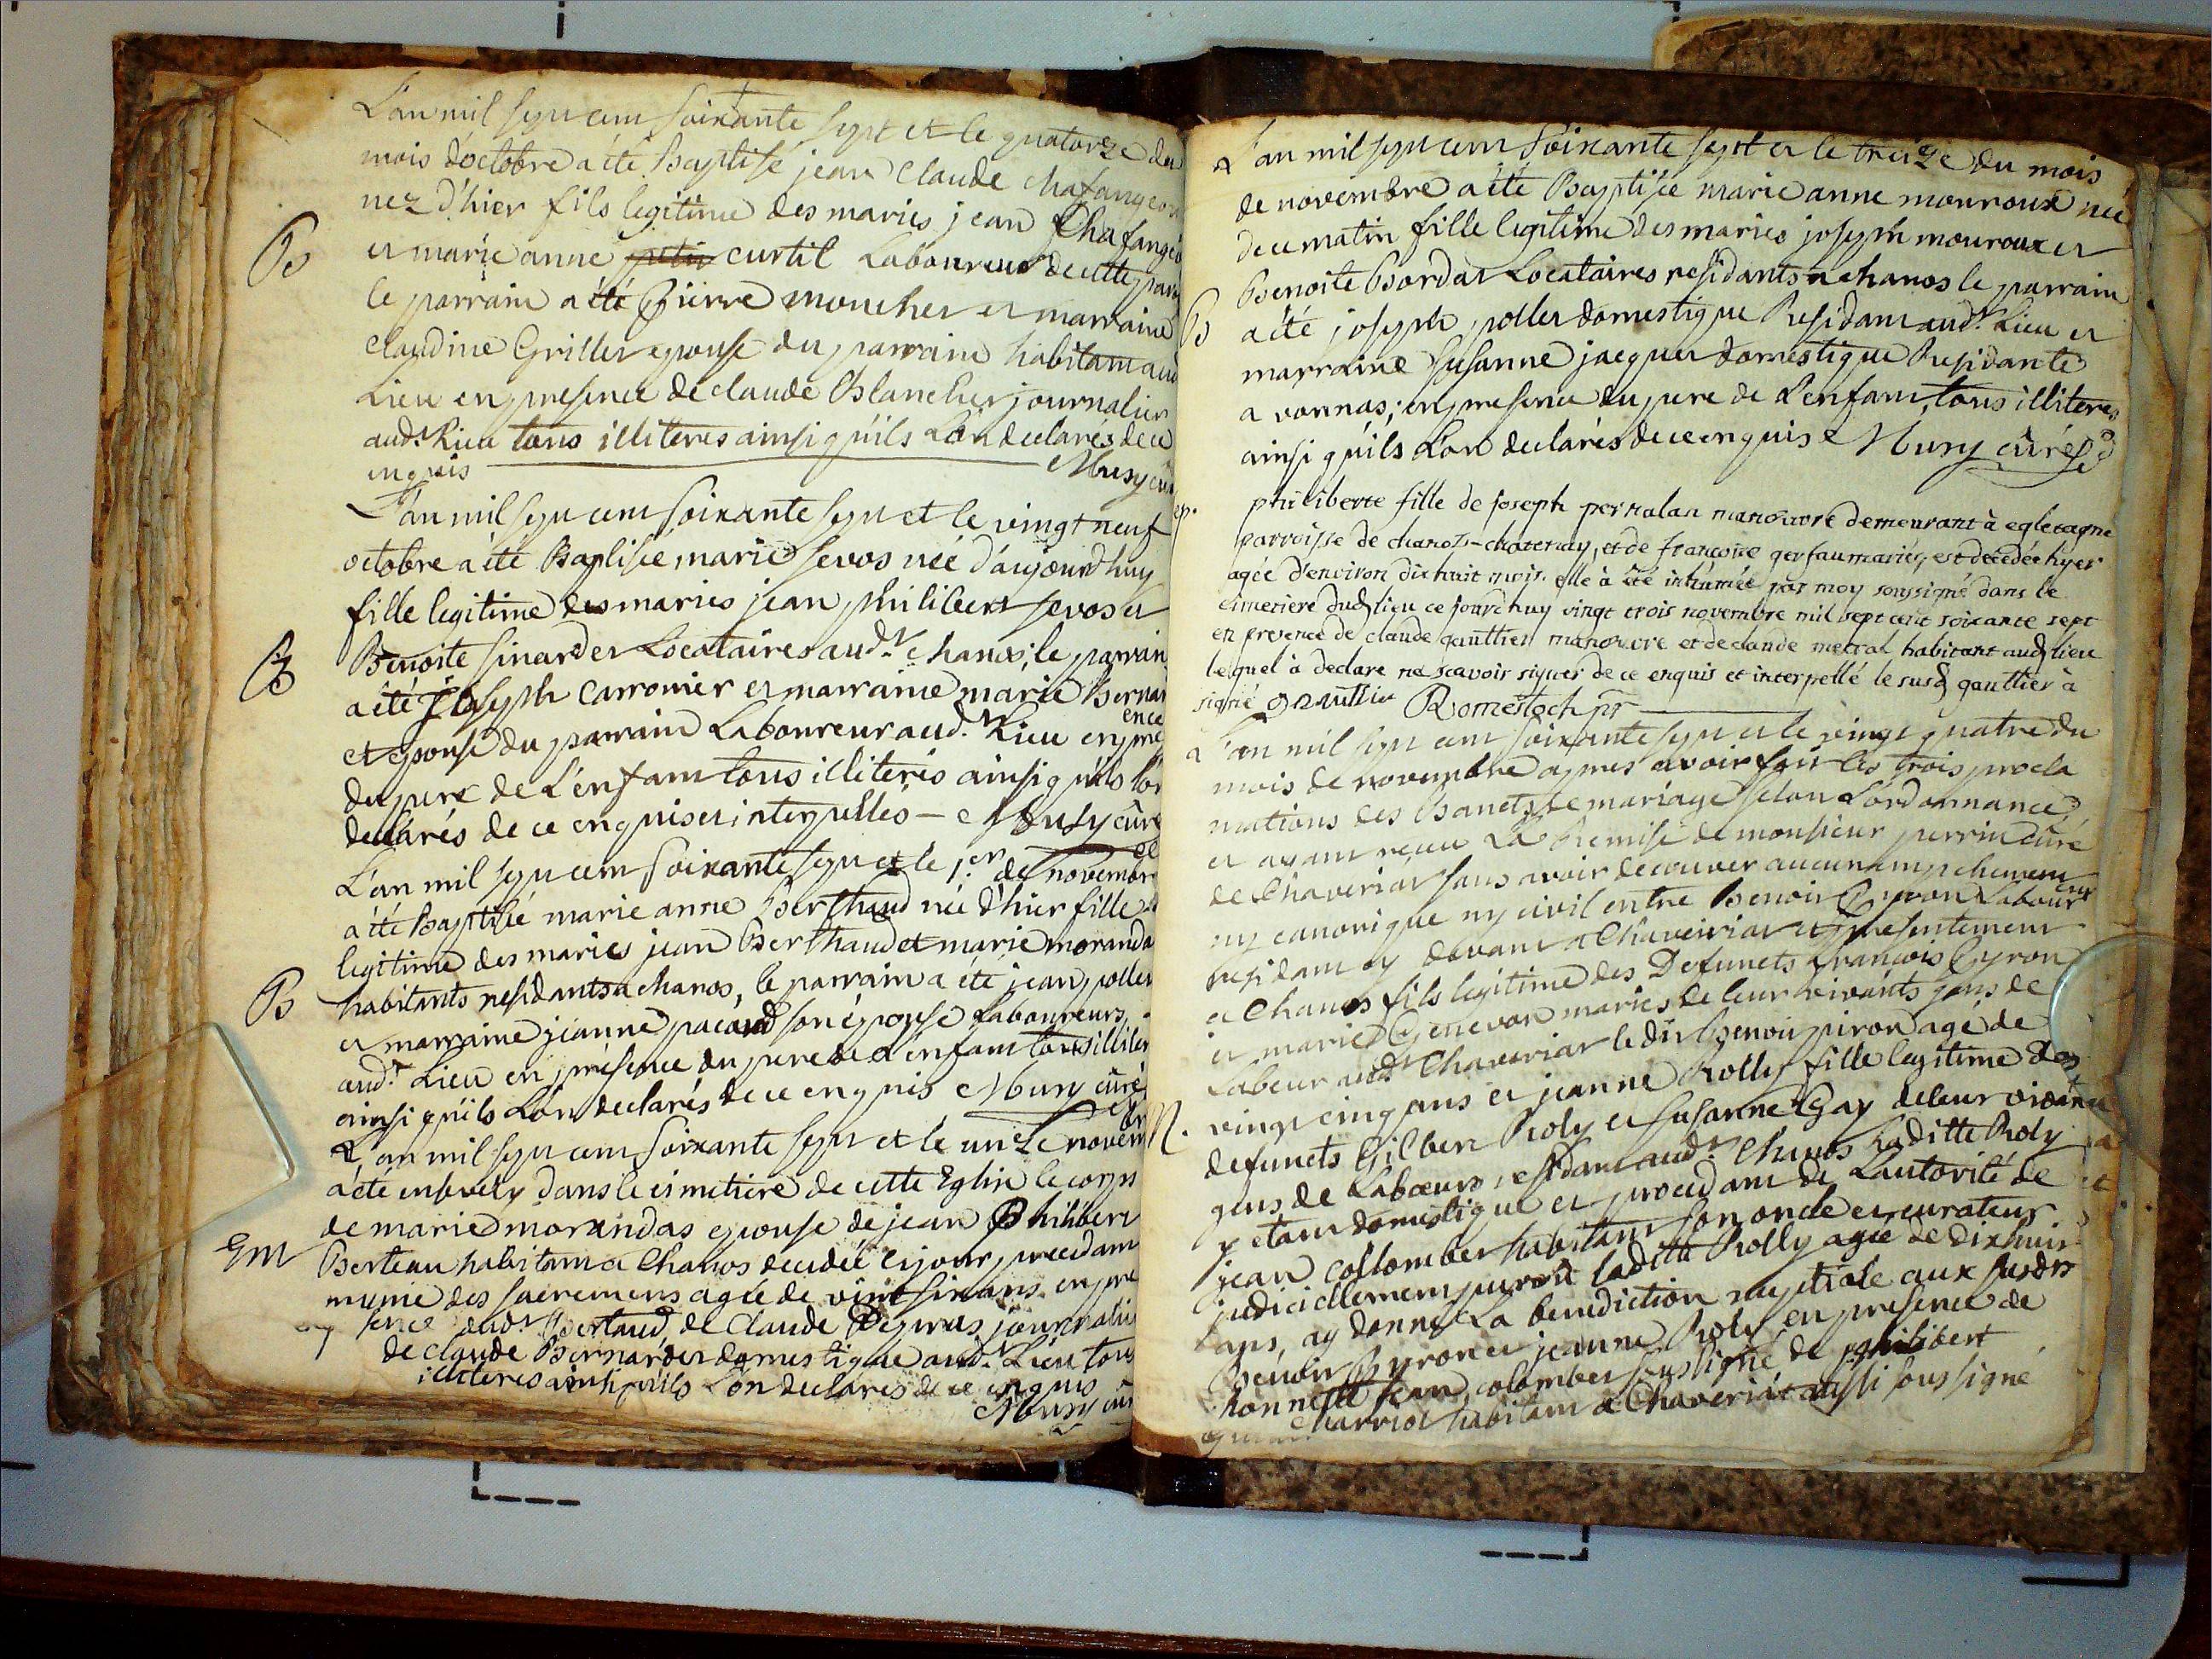 L'an mil sept cent soixante sept et le quatorze du
mois d'octobre a été Baptisé jean Claude chafangeon
nez d'hier fils legitime des mariés jean Chafangeo
B
et marie anne curtil Laboureur de cette paro
le parrain a été pierre moncher et marraine
claudine Griller epouse du parrain habitant aud
Lieu en presence de claude Blancher journalier
audt Lieu tous illiteres ainsi quils Lon declarés de ce
enquis Musy cu
L'an mil sept cent soixante sept et le vingt neuf
octobre a été Baptisée marie sevos née d'aujourdhuy
fille legitime des mariés jean philibert sevos et
B
Benoite sinardet Locataires audt chanos, le parrain
a été joseph carronier et marraine marie Bernar
et epouse du parrain Laboureur audt Lieu en pre
ence
du pere de L'enfant tous illiterés ainsi quils l'on
declarés de ce enquis et interpellés - Musy curé
L'an mil sept cent soixante sept et le 1er de novembre
a été Baptisé marie anne Berthaud née d'hier fille
legitime des mariés jean Berthaud et marie moranda
B
habitants residants a chanos, le parrain a été jean poller
et marraine jeanne pacaud son épouse Laboureurs
audt Lieu en présence du pere de L'enfant tous illiter
ainsi quils Lon declarés de ce enquis Musy curé
L'an mil sept cent soixante sept et le unze novem
br
a été ensevely dans le cimetiere de cette Eglise le corps
de marie morandas epouse de jean Philibert
em
Berteau habitant a Chanos decedée le jour precedant
munie des sacremens agée de vint six ans en pre
sence dudt Bertaud, de Claude journalie
de claude Bernardet domestique audt Lieu tous
illiteres ainsi quils Lon declarés de ce enquis
Musy cu
L'an mil sept cent soixante sept et le treize du mois
de novembre a été Baptisée marie anne monroux née
de ce matin fille legitime des mariés joseph mouroux et
Benoite Bordat Locataires residants a chanos le parrain
B
a été joseph poller domestique Residant audt Lieu et
marraine susanne jacquet domestique Residante
a vonnas, en presence du pere de L'enfant, tous illiteres
ainsi quils L'on declarés de ce enquis Musy curé
ep.
philiberte fille de joseph pernalan manouvre demeurant à egletagne
parroisse de chanoz-chatenay, et de francoise gerfau mariés, est decedée hyer
agée d'environ dix huit mois. elle à été inhumée par moy soussigné dans le
cimetiere dud lieu ce jourdhuy vingt trois novembre mil sept cent soixante sept
en presence de claude gaulthier manouvre et de claude metral habitant aud lieu
lequel à declaré ne scavoir signer de ce enquis et interpellé le susd gaulthier à
signé gauttier Romestoch ptr
L'an mil sept cent soixante sept et le vingt quatre du
mois de novembre apres avoir fait les trois procla
mations des Bancts de mariage selon L'ordonnance
et ayant receu La Remise de monsieur perrin curé
de Chaveriat sans avoir decouver aucun empechement
ny canonique ny civil entre Benoit pyron Laboureur
residant cy devant a Chaveiriat et presentement
a Chanos fils legitime des Defuncts francois pyron
et marie Genevon mariés de leur vivants gens de
Labeur audt Chaveriat le dit benoit piron agé de
M.
vingt cinq ans et jeanne Rolly fille legitime des
defuncts Gilbert Roly et susanne Gay de leur vivant
gens de Labœurs, residant audt Chanos Laditte Roly
y etant domestique et procedant de L'autorité de
jean collomber habitant son oncle et curateur
judiciellement laditte Rolly agée de dix huit
ans, ay donné La benediction nuptiale aux susdts
Benoit Pyron et jeanne Roly en presence de
honneste jean colomber soussigné de philibert
Charriot habitant a Chaveriat aussi soussigné